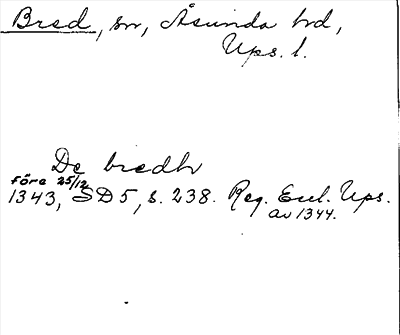 Bred, sn, Åsunda hd,
Ups. l.
De bredh
före 25/12
1343, SD 5, s. 238. Reg. Eccl. Ups.
av 1344.